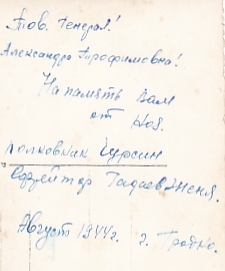 Тов. Генерал!
Александра Трофимовна!
На память Вам
от Ноя.
полковник Чурсин
Ефрейтор Гадаев Женя.
Август 1944г. г. Гродно.